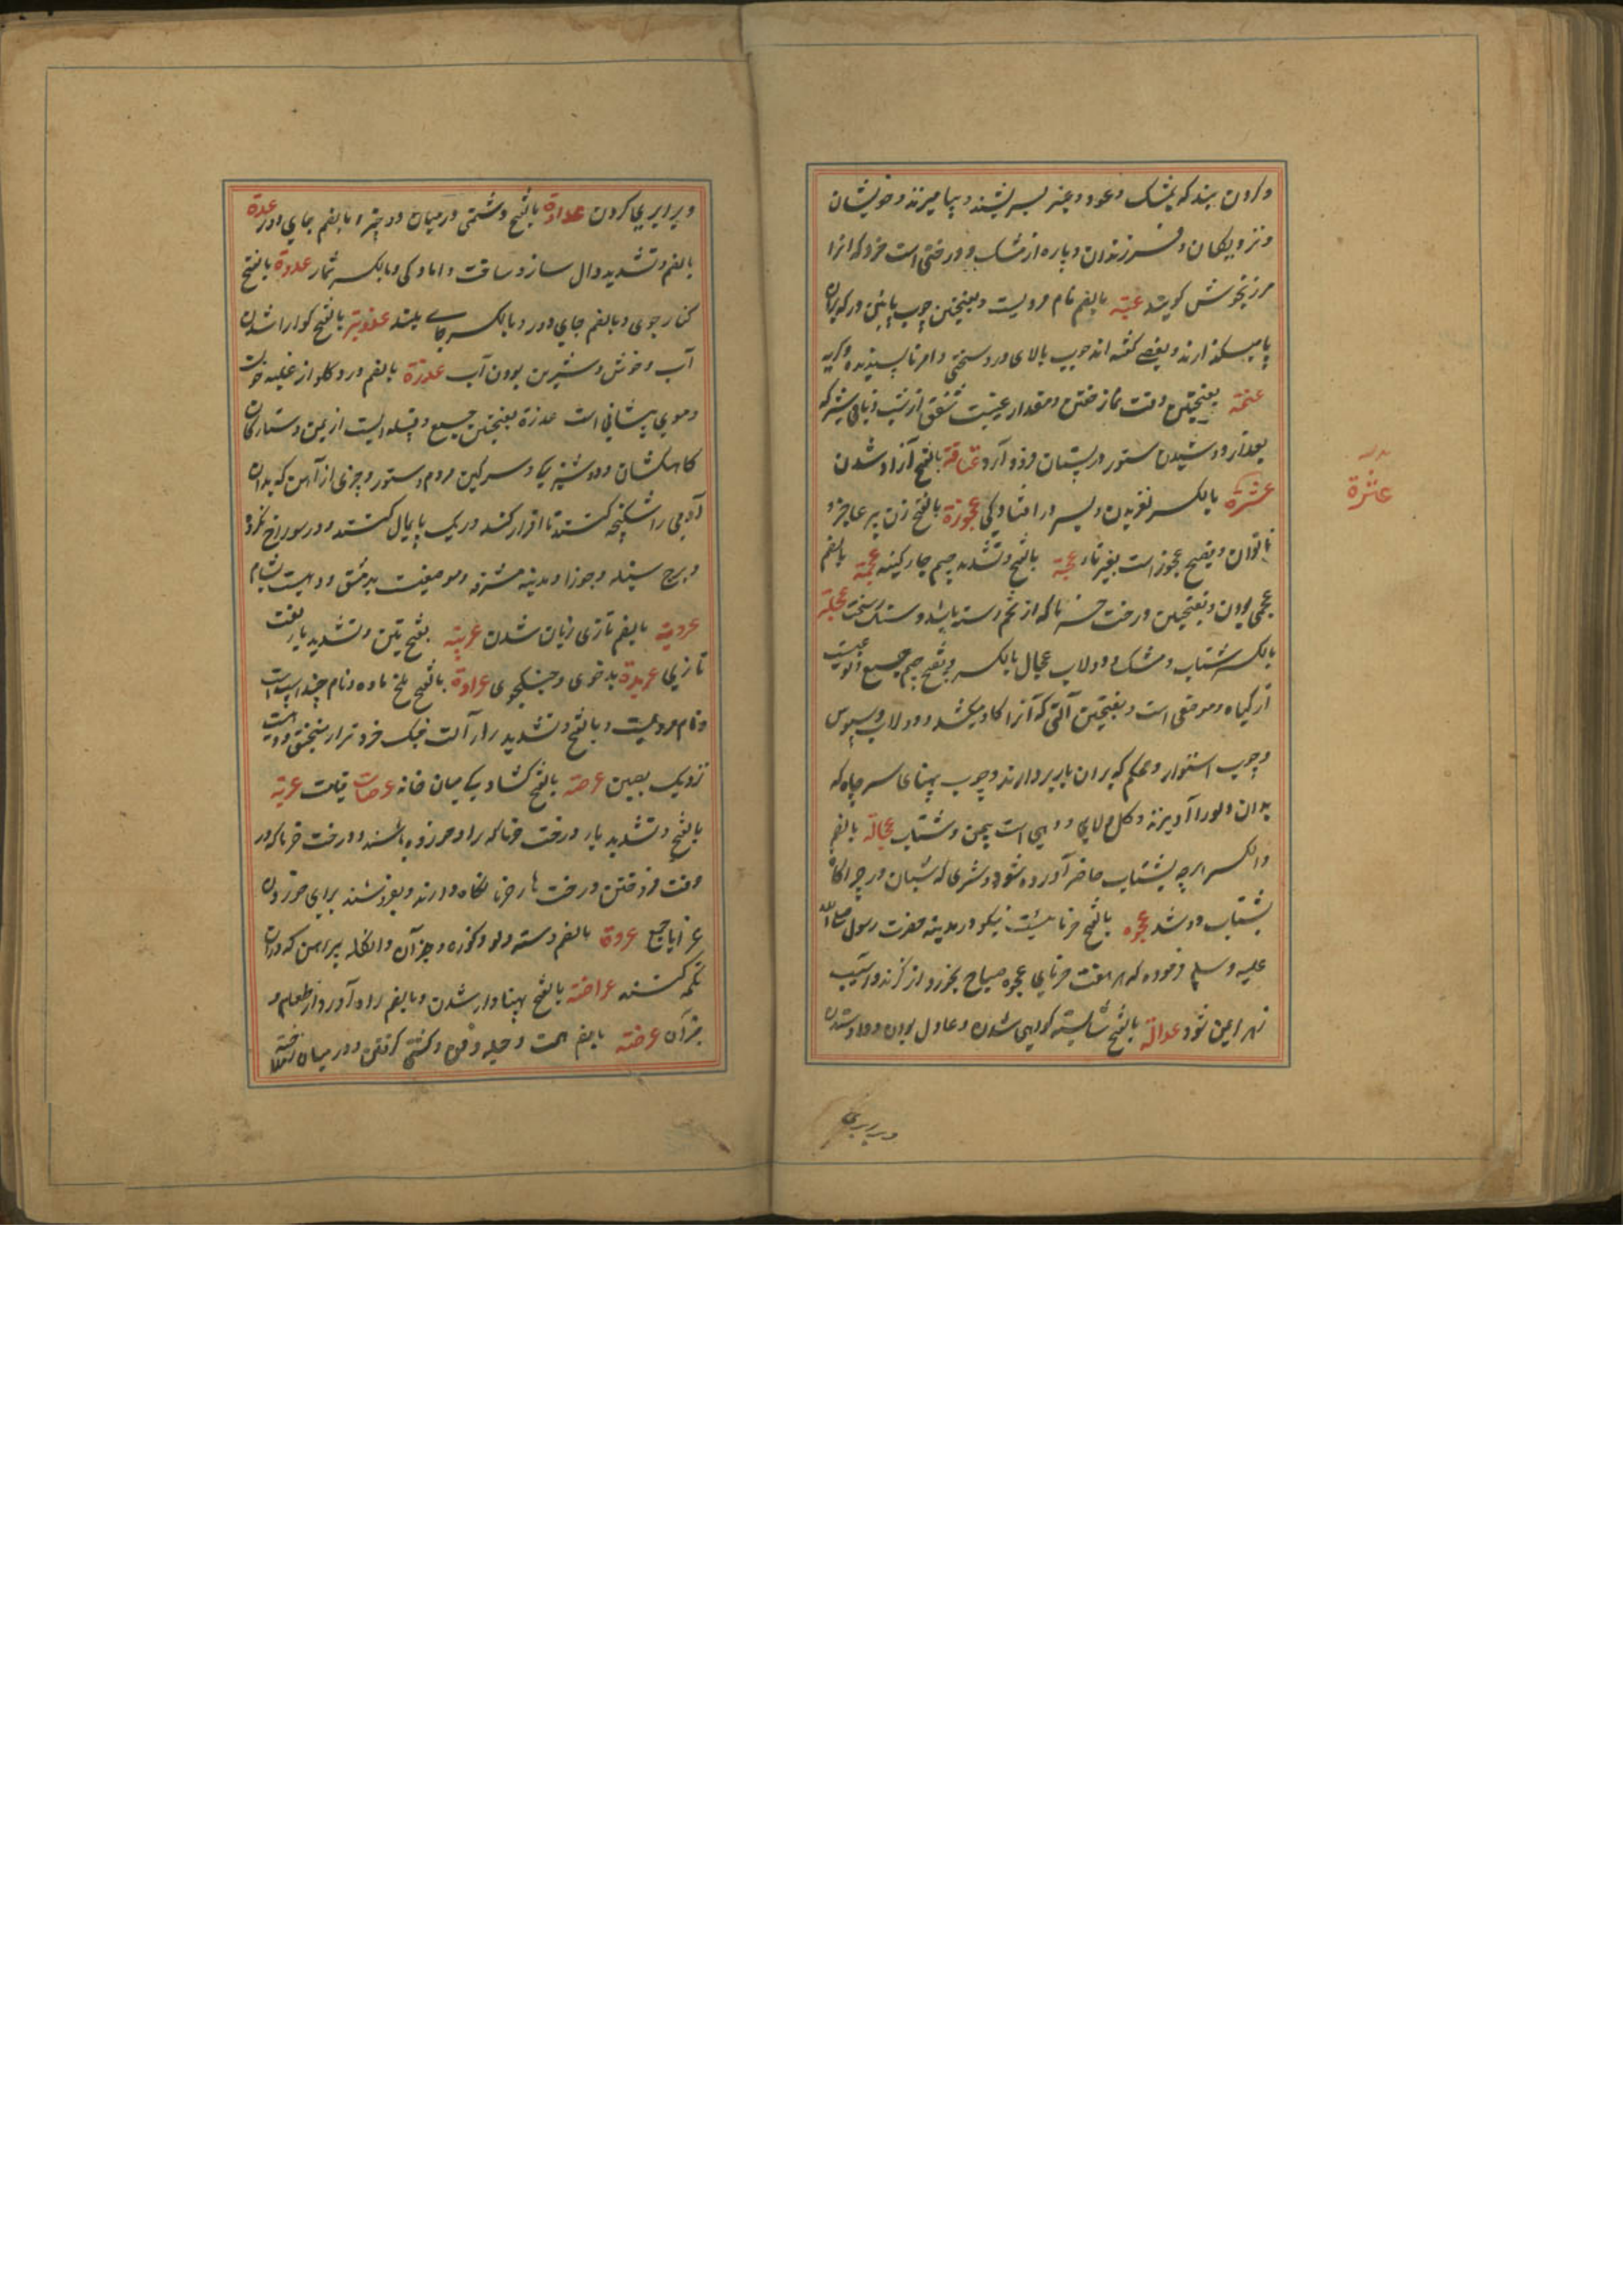 و کردن بند که بمشک و عود و عنبر بسریشند و بیامیزند و خویشان
و نزدیکان و فرزندان و پاره از مشک و درختی است خرد که آنرا
مرزنجوش کویند عتبة بالضم نام مردیست و بفتحتین چوب پائین در که بران
پا میکذارند و بعضے کفته اند چوب بالای در و سختی و امر ناپسندیده
عتمة بفتحتین وقت نماز خفتن و مقدار غیبت شفق از شب و باقی شیر که
بعد از دوشیدن ستور در پستان فرود آرد عتاقة بالفتح آزاد شدن
عثرة بالکسر لغزیدن و بسر در افتادکی عجوزة بالفتح زن پیر عاجز و
ناتوان و فصیح عجوز است بغیر تاء عجة بالفتح و تشدید جیم عجمة بالضم
عجمی بودن و بفتحتین درخت خرما که از تخم رسته باشد و سنک سخت عجلة
بالکسر شتاب و مشک و دولاب عجال بالکسر و بفتح جیم جمع و نوعیست
از کیاه و موضعی است و بفتحتین آلتی که آنرا کاو میکشد و دولاب
و چوب استوار و محکم که بران بار بردارند و چوب پهنای سر چاه که
بدان دلو را آویزند و کل و لای و دهی است بیمن و شتاب عجالة بالضم
و الکسر هرچه بشتاب حاضر آورده شود و شری که شبان در چراکاه
بشتاب دوشد عجوه بالفتح خرمائیست نیکو در مدینه حضرت رسول صلی الله
علیه و سلم فرموده که هر هفت خرمای عجوه صباح بخورد از کزند و آسیب
زهر ایمن شود عدالة بالفتح شایسته کواهی شدن و عادل بودن و داد ستدن
عثرة
و برابری
و برابری کردن عداوة بالفتح دشمنی و درمیان دو چیز و بالضم جای دور عدة
بالضم و تشدید دال ساز و ساخت و امادکی و بالکسر شمار عدوة بالفتح
کنار جوی و بالضم جای دور و بالکسر جاے بلند عذوبة بالفتح کوارا شدن
آب و خوش و شیرین بودن آب عذرة بالضم درد کلو از غلبه خون
و موی پیشانی است عذرة بفتحتین جمع و قبیله ایست از یمن و ستارکان
کاهکشان و دوشیزکی و سرکین مردم و ستور و چیزی از آهن که بدان
آدمی را شکنجه کنند تا اقرار کند
و برج سنبله و جوزا و مدینه مشرفه و موضعیست بدمشق و دهیست بشام
عروبة بالضم تازی زبان شدن عربیة بفتحتین و تشدید یا لغت
تازی عربدة بدخوی و جنکجوی عرادة بالفتح ملخ ماده و نام چند اسپ است
و نام مردیست و بالفتح و تشدید را آلت جنک فروتر از منجنیق
نزدیک عرصة بالفتح کشادکی میان خانه عرصات قیامت عریة
بالفتح و تشدید یا درخت خرما
وقت فروختن درخت ها خرما نکاه دارند و بفروشند برای خوردن
عرایا جمع عروة بالضم دسته دلو و کوزه و جز آن و انکله پیراهن که دران
تکمه کنند عراضة بالفتح پهناور شدن و بالضم راه آورد از طعام و
جز آن عرضة بالضم همت و حیله و فن و کشتی کرفتن و درمیان